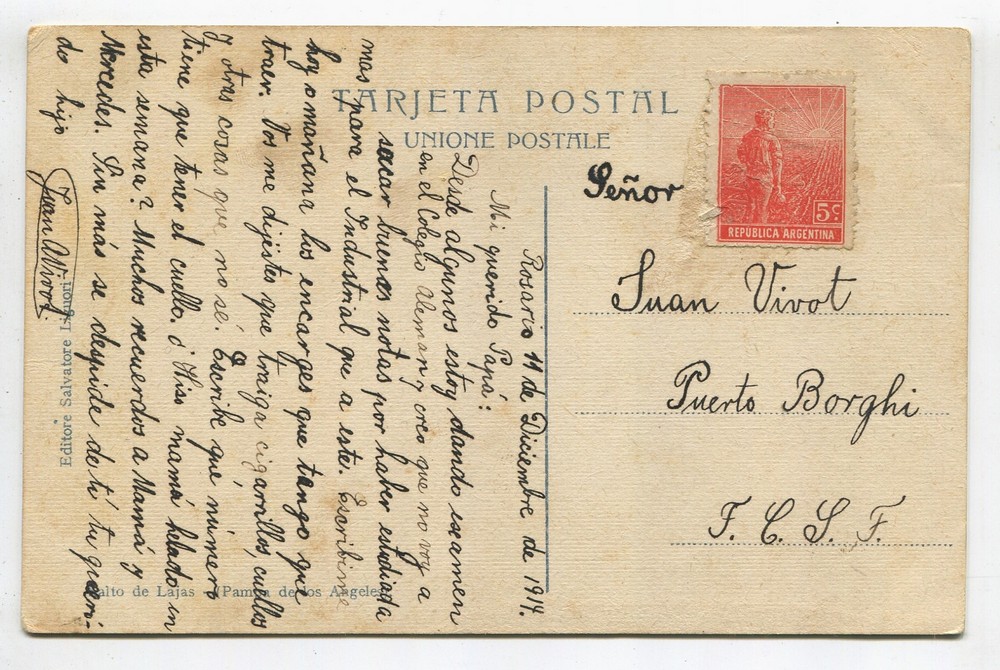 TARJETA POSTAL
UNIONE POSTALE
5c
REPUBLICA ARGENTINA
Señor
Juan Vivot
Puerto Borghi
F. C. S. F.
Rosario 11 de Diciembre de 1914.
Mi querido Papá:
Desde algunos estoy dando examen
en el Colegio Aleman y creo que no voy a
sacar buenas notas por haber estudiada
mas para el Industrial que a este. Escribime
hoy o mañana los encarges que tango que
traer. Vos me dijistes que traiga cigarrillos, cuellos
y otras cosas que no sé. Escribe que número
tiene que tener el cuello. ó Hiso mamá helado in
esta semana? Muchos recuerdos a Mamá y
Mercedes. Sin más se despide de tí tu queri-
do hijo
Juan Vivot.
Editore Salvatore Liguori
Salto de Lajas Pampa de los Angeles